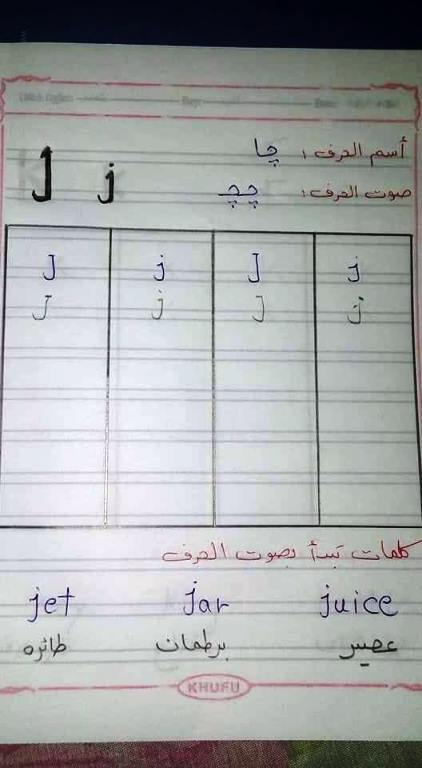 أسم الحرف : چا
J j
صوت الحرف : چچ
J j J j
J j J j
كلمات تبدأ بصوت الحرف
jet jar juice
طائره برطمان عصير
KHUFU